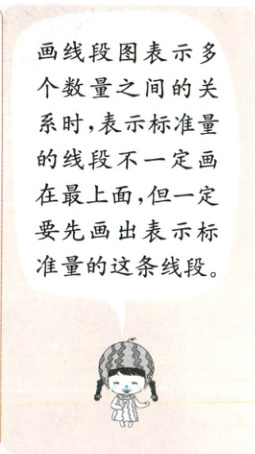 画线段图表示多
个数量之间的关
系时,表示标准量
的线段不一定画
在最上面,但一定
要先画出表示标
准量的这条线段。